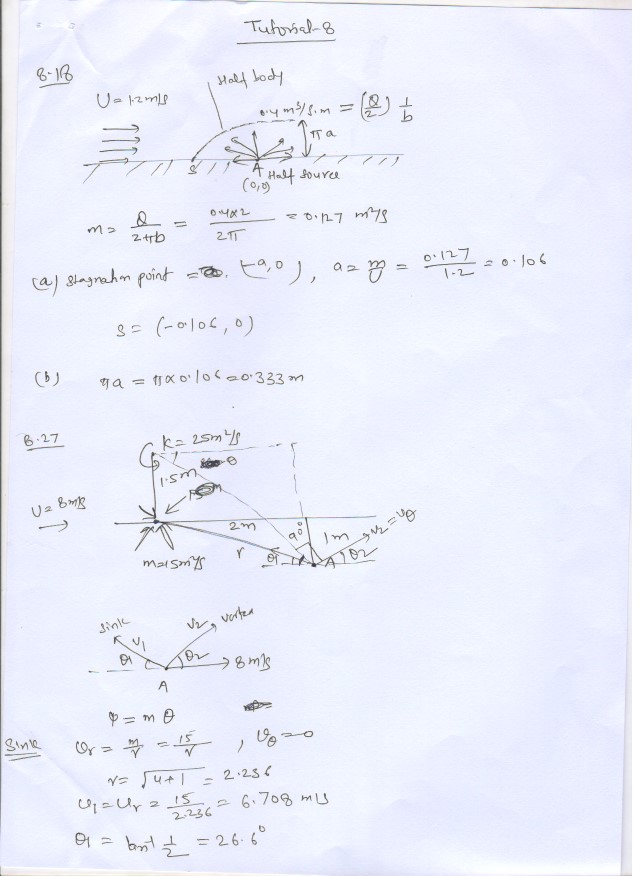 Tutorial-8
8.18
Half body
U = 1.2 m/s
0.4 m³/s.m = (Q/2) 1/b
πa
S
A
Half source
(0,0)
m = Q/2πb = 0.4x2/2π = 0.127 m²/s
(a) Stagnation point = (-a,0), a = m/U = 0.127/1.2 = 0.106
S = (-0.106, 0)
(b) πa = π x 0.106 = 0.333 m
8.27
K = 25 m²/s
θ
1.5m
U = 8 m/s
2m
90°
1m
v2 = vθ
r
θ1
A
θ2
m=15 m²/s
sink
v1
v2
vortex
θ1
θ2
8 m/s
A
ψ = m θ
Sink
vr = m/r = 15/r , vθ = 0
r = √4+1 = 2.236
v1 = vr = 15/2.236 = 6.708 m/s
θ1 = tan⁻¹ 1/2 = 26.6°